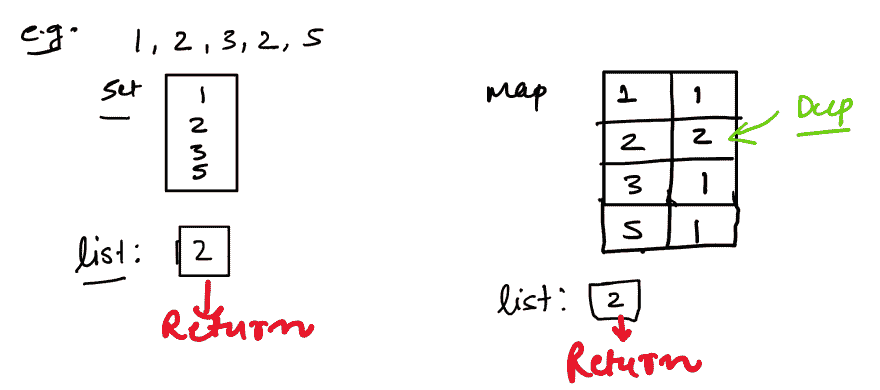 e.g. 1, 2, 3, 2, 5
set
1
2
3
5
list: 2
Return
Map
1 1
2 2
3 1
5 1
Dup
list: 2
Return